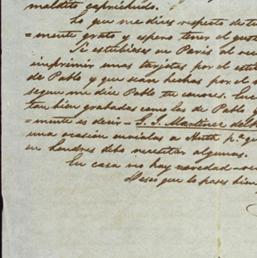 maldito caprichudo.
Lo que me dices respecto de
=mente grato y espero tener el gusto
Si estubieses en Paris al
imprimir unas tarjetas por el
de Pablo y que sean hechas por el
segun me dice Pablo tu conoces.
tan bien grabadas como las de Pablo
=mente es decir - S. J. Martinez del
una ocasion envialas a
en Londres debo necesitar algunas.
En casa no hay novedad -
Deseo que lo pases bien